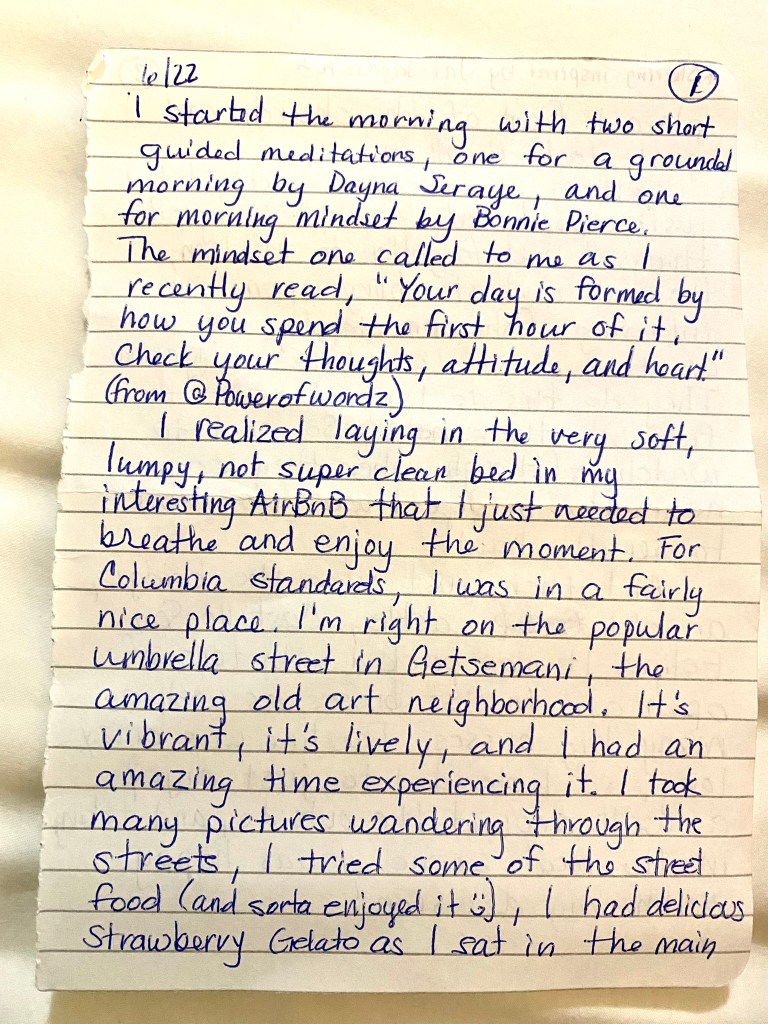 6/22 1
I started the morning with two short
guided meditations, one for a grounded
morning by Dayna Seraye, and one
for morning mindset by Bonnie Pierce.
The mindset one called to me as I
recently read, "Your day is formed by
how you spend the first hour of it.
Check your thoughts, attitude, and heart."
(from @Powerofwordz)
I realized laying in the very soft,
lumpy, not super clean bed in my
interesting AirBnB that I just needed to
breathe and enjoy the moment. For
Columbia standards, I was in a fairly
nice place. I'm right on the popular
umbrella street in Getsemani, the
amazing old art neighborhood. It's
vibrant, it's lively, and I had an
amazing time experiencing it. I took
many pictures wandering through the
streets, I tried some of the street
food (and sorta enjoyed it ☺), I had delicious
Strawberry Gelato as I sat in the main